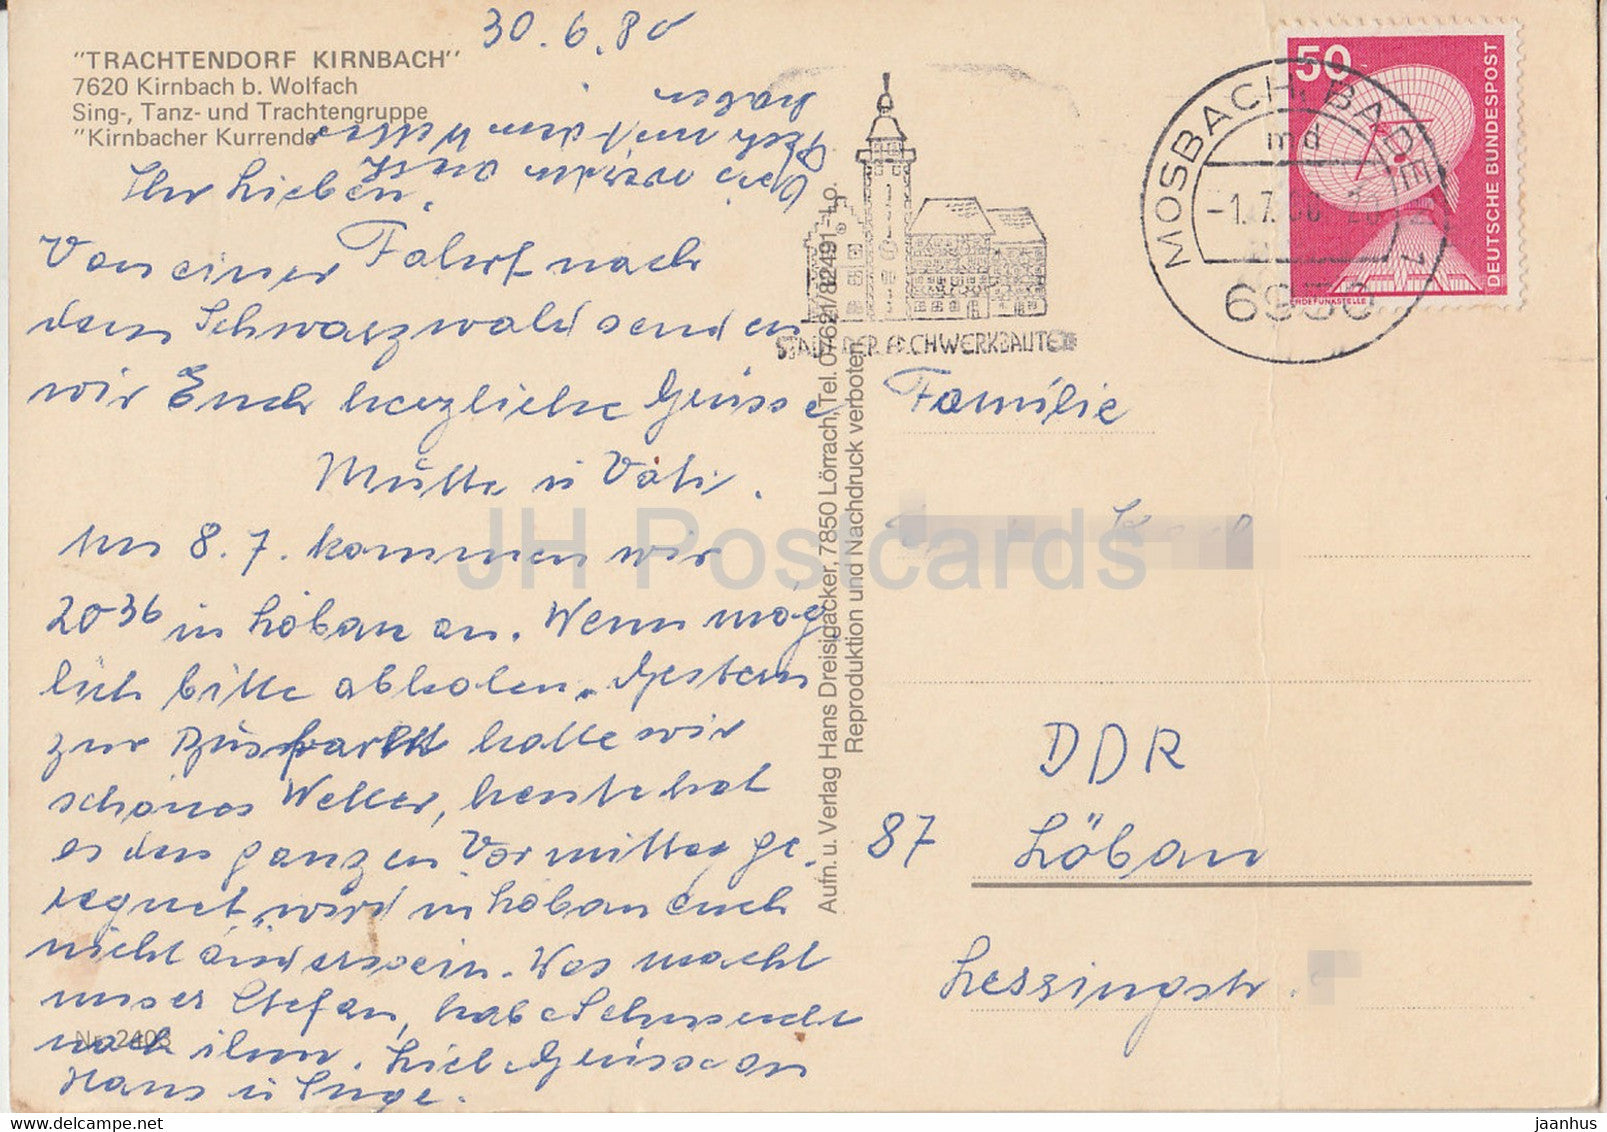 30.6.80
"TRACHTENDORF KIRNBACH"
7620 Kirnbach b. Wolfach
Sing-, Tanz- und Trachtengruppe
"Kirnbacher Kurrende"
Ihr Lieben.
Von einer Fahrt nach
dem Schwarzwald senden
wir Euch herzliche Grüsse
Mutti u Vati.
Am 8.7. kommen wir
20³⁶ in Löbau an. Wenn mög
lich bitte abholen. Gestern
zur Busfahrt hatte wir
schönes Wetter, heute hat
es den ganzen Vormittag ge.
regnet, wird in Löbau auch
nicht anders sein. Was macht
unser Stefan, habe Sehnsucht
nach ihm. Liebe Grüsse an
Hans u Inge.
Nr. 2403
Aufn. u. Verlag Hans Dreisigacker, 7850 Lörrach, Tel. 07621/82491 - Lo.
Reproduktion und Nachdruck verboten
STADT DER FACHWERKBAUTEN
MOSBACH, BADEN 1
md
-1.7.80
6950
50
DEUTSCHE BUNDESPOST
ERDEFUNKSTELLE
Familie
DDR
87 Löbau
Lessingstr.
JH Postcards
www.delcampe.net
jaanhus